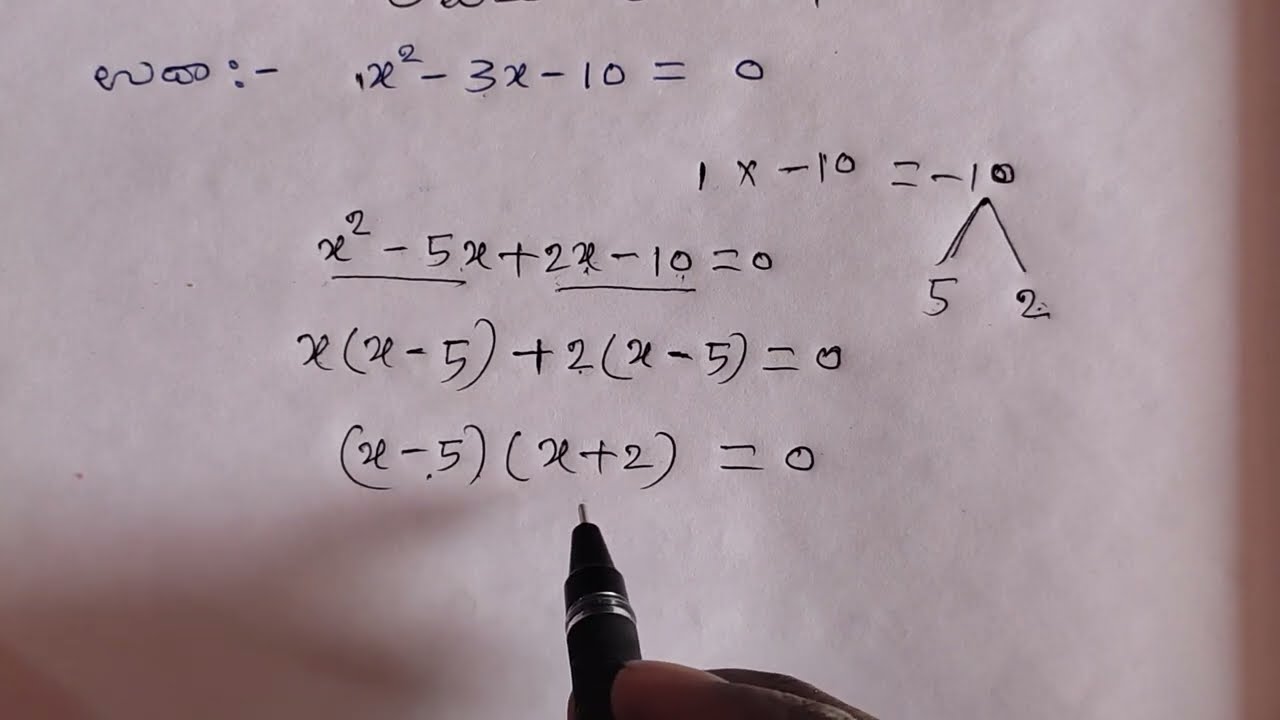 ಉದಾ :- x² - 3x - 10 = 0
1 x - 10 = - 10
5 2
x² - 5x + 2x - 10 = 0
x(x - 5) + 2(x - 5) = 0
(x - 5) (x + 2) = 0